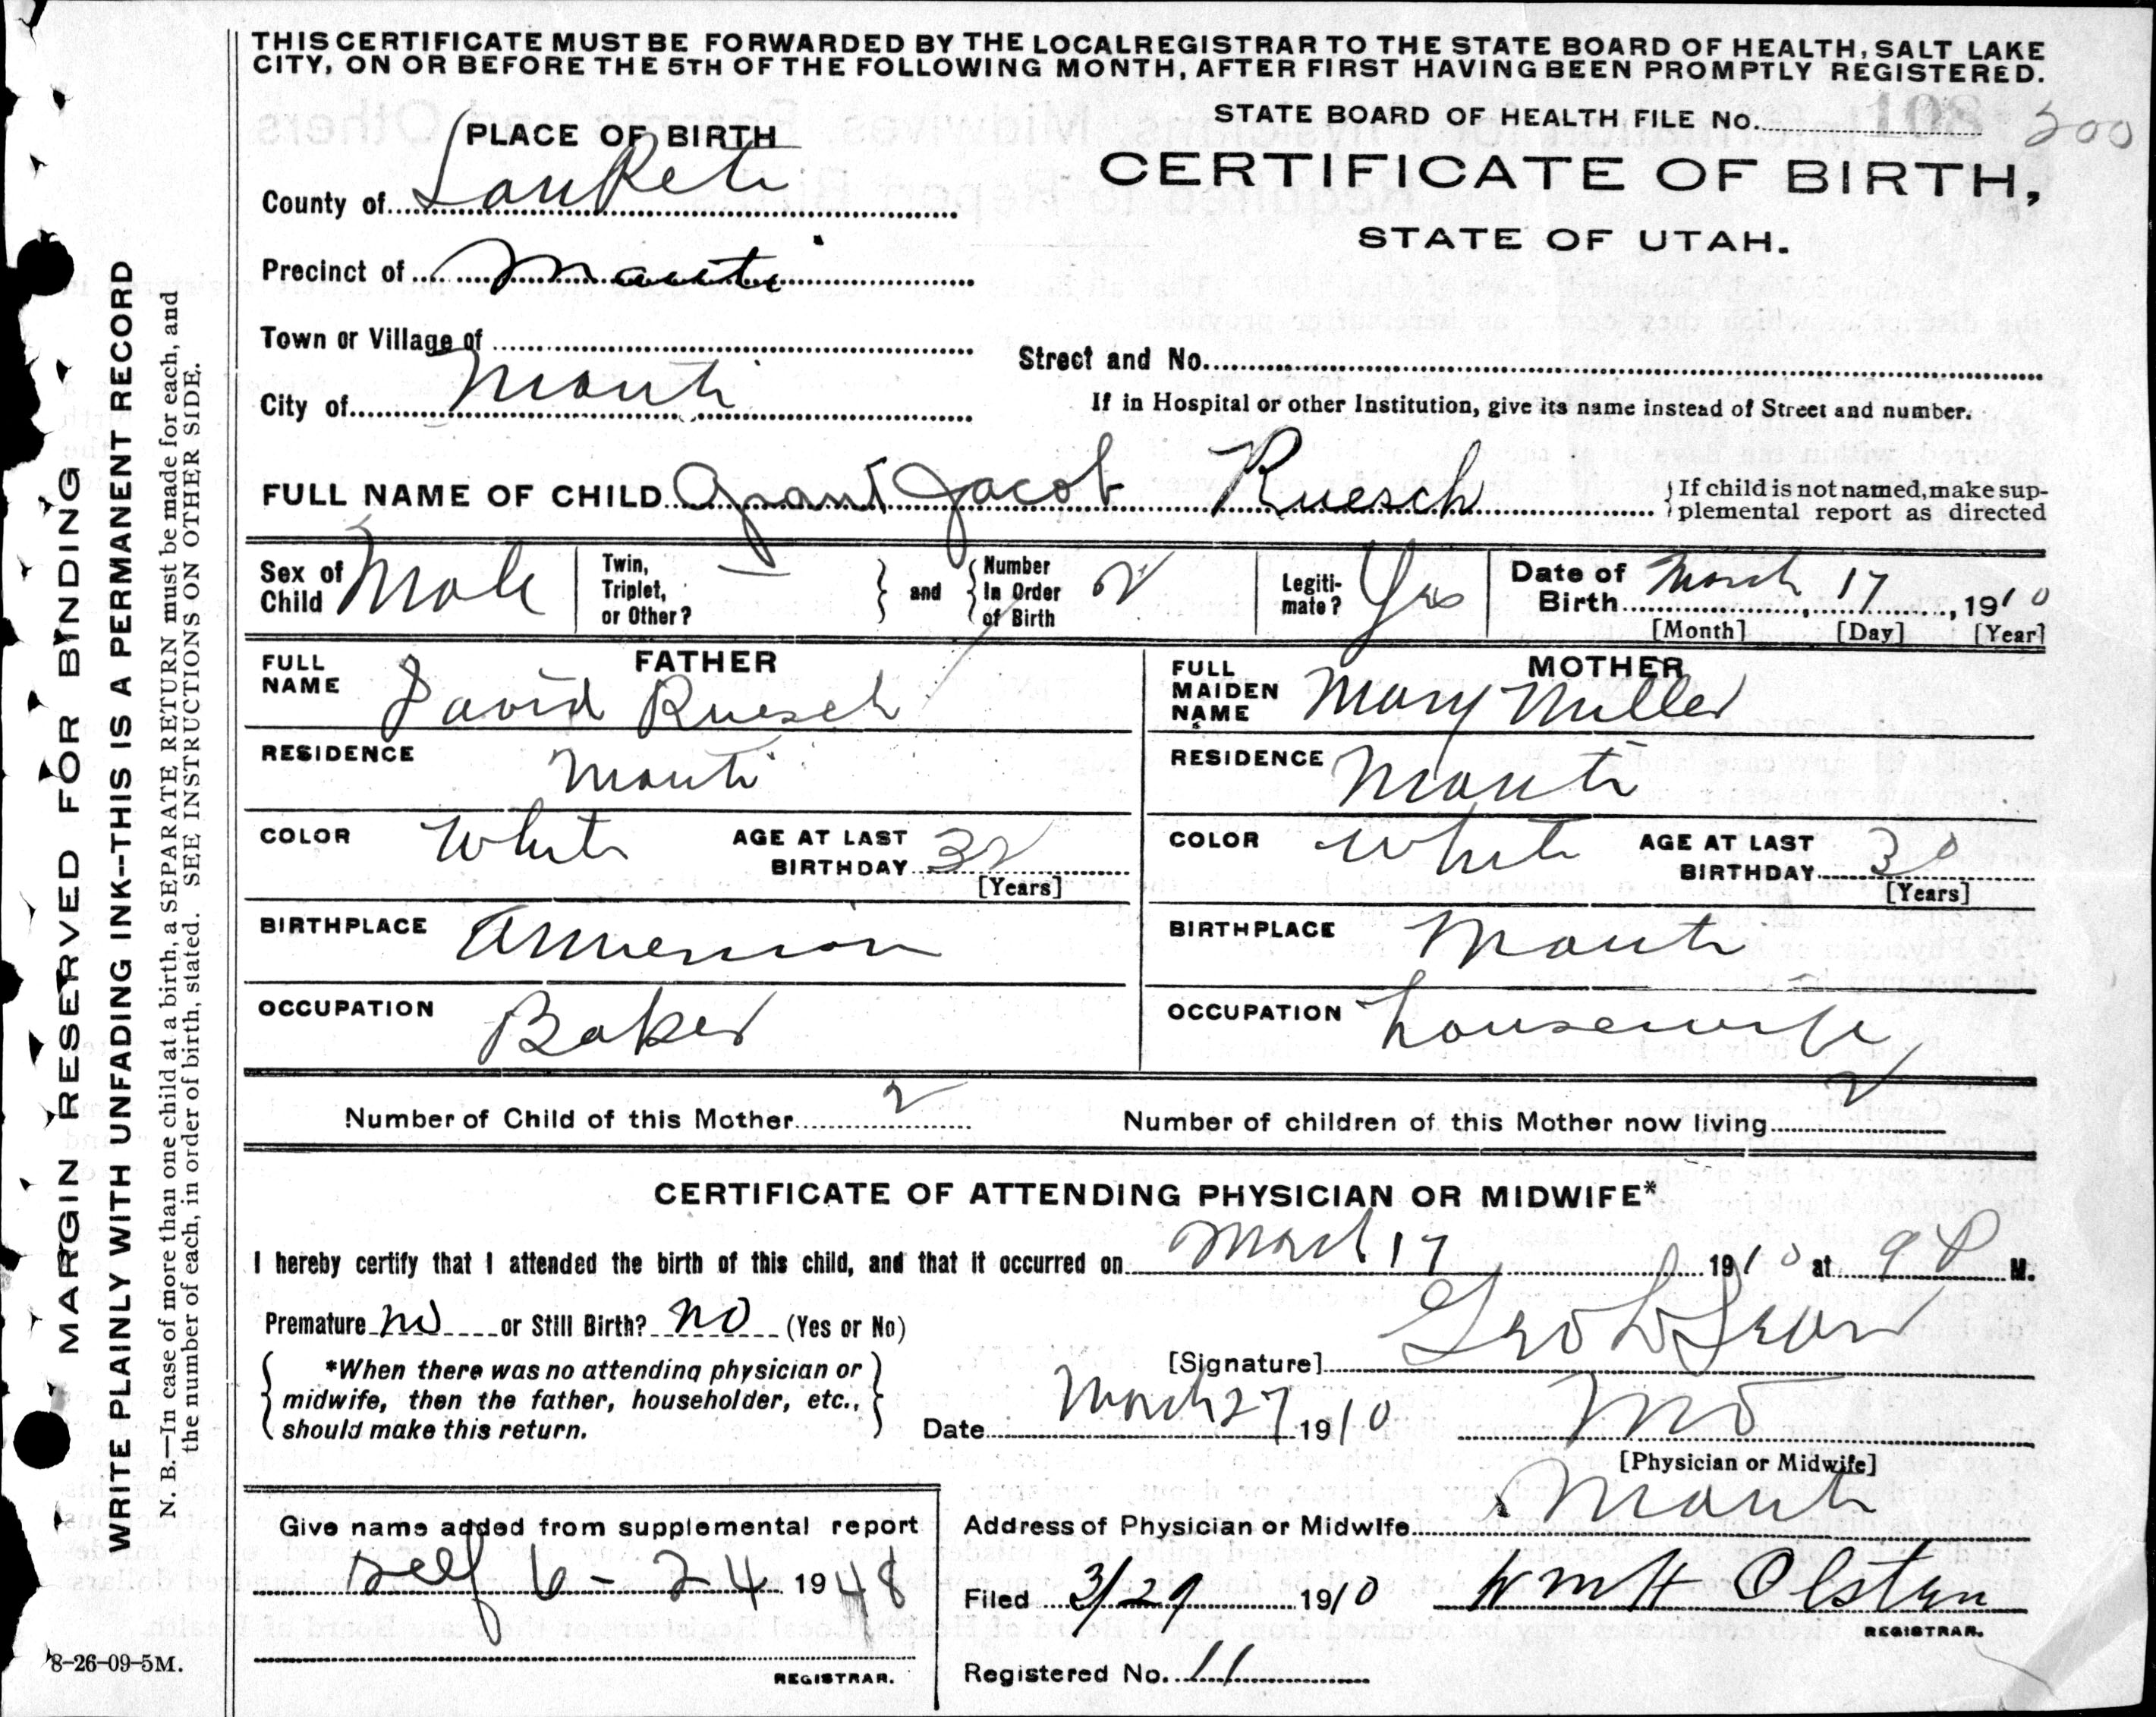 THIS CERTIFICATE MUST BE FORWARDED BY THE LOCAL REGISTRAR TO THE STATE BOARD OF HEALTH, SALT LAKE
CITY, ON OR BEFORE THE 5TH OF THE FOLLOWING MONTH, AFTER FIRST HAVING BEEN PROMPTLY REGISTERED.
STATE BOARD OF HEALTH FILE No. 108 200
CERTIFICATE OF BIRTH,
STATE OF UTAH.
PLACE OF BIRTH
County of SanPete
Precinct of Manti
Town or Village of
City of Manti
Street and No.
If in Hospital or other Institution, give its name instead of Street and number.
FULL NAME OF CHILD Grant Jacob Ruesch
If child is not named, make sup-
plemental report as directed
Sex of Child Male
Twin, Triplet, or Other? —
and
Number In Order of Birth 2
Legiti-mate? Yes
Date of Birth March 17, 1910
[Month] [Day] [Year]
FATHER
FULL NAME David Ruesch
RESIDENCE Manti
COLOR White
AGE AT LAST BIRTHDAY 32
[Years]
BIRTHPLACE
OCCUPATION Baker
MOTHER
FULL MAIDEN NAME Mary Miller
RESIDENCE Manti
COLOR White
AGE AT LAST BIRTHDAY 30
[Years]
BIRTHPLACE Manti
OCCUPATION housewife
Number of Child of this Mother 2
Number of children of this Mother now living 2
CERTIFICATE OF ATTENDING PHYSICIAN OR MIDWIFE*
I hereby certify that I attended the birth of this child, and that it occurred on March 17 1910 at 9 P M.
Premature no or Still Birth? no (Yes or No)
*When there was no attending physician or
midwife, then the father, householder, etc.,
should make this return.
[Signature] Geo L
Date March 27 1910
MD
[Physician or Midwife]
Address of Physician or Midwife Manti
Give name added from supplemental report
self 6-24 1948
REGISTRAR.
Filed 3/29 1910
Wm H Olsten
REGISTRAR.
Registered No. 11
8-26-09-5M.
MARGIN RESERVED FOR BINDING
WRITE PLAINLY WITH UNFADING INK--THIS IS A PERMANENT RECORD
N. B.—In case of more than one child at a birth, a SEPARATE RETURN must be made for each, and
the number of each, in order of birth, stated. SEE INSTRUCTIONS ON OTHER SIDE.